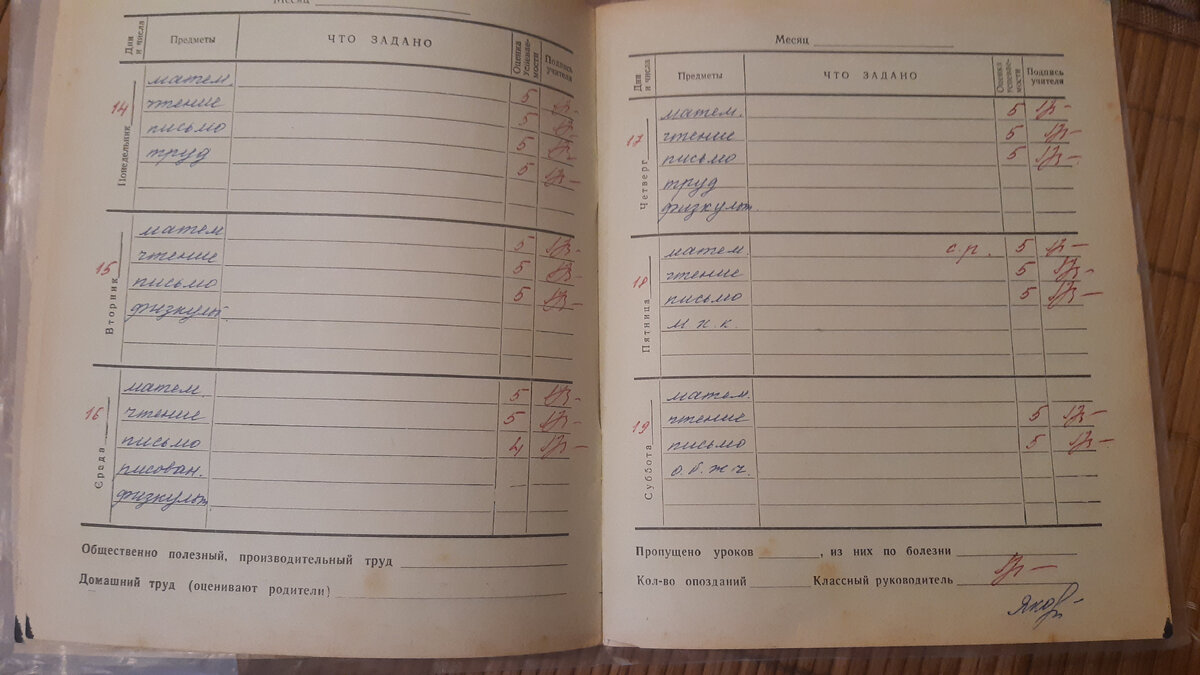 Месяц
Дни и числа Предметы ЧТО ЗАДАНО Оценка успевае-мости Подпись учителя
14 Понедельник
матем.
чтение 5
письмо 5
труд 5
5
15 Вторник
матем 5
чтение 5
письмо 5
физкульт.
16 Среда
матем. 5
чтение 5
письмо 4
рисован.
физкульт.
Общественно полезный, производительный труд
Домашний труд (оценивают родители)
Месяц
Дни и числа Предметы ЧТО ЗАДАНО Оценка успевае-мости Подпись учителя
17 Четверг
матем. 5
чтение 5
письмо 5
труд
физкульт.
18 Пятница
матем. с.р. 5
чтение 5
письмо 5
м х.к.
19 Суббота
матем.
чтение 5
письмо 5
о.б.ж.ч.
Пропущено уроков , из них по болезни
Кол-во опозданий Классный руководитель